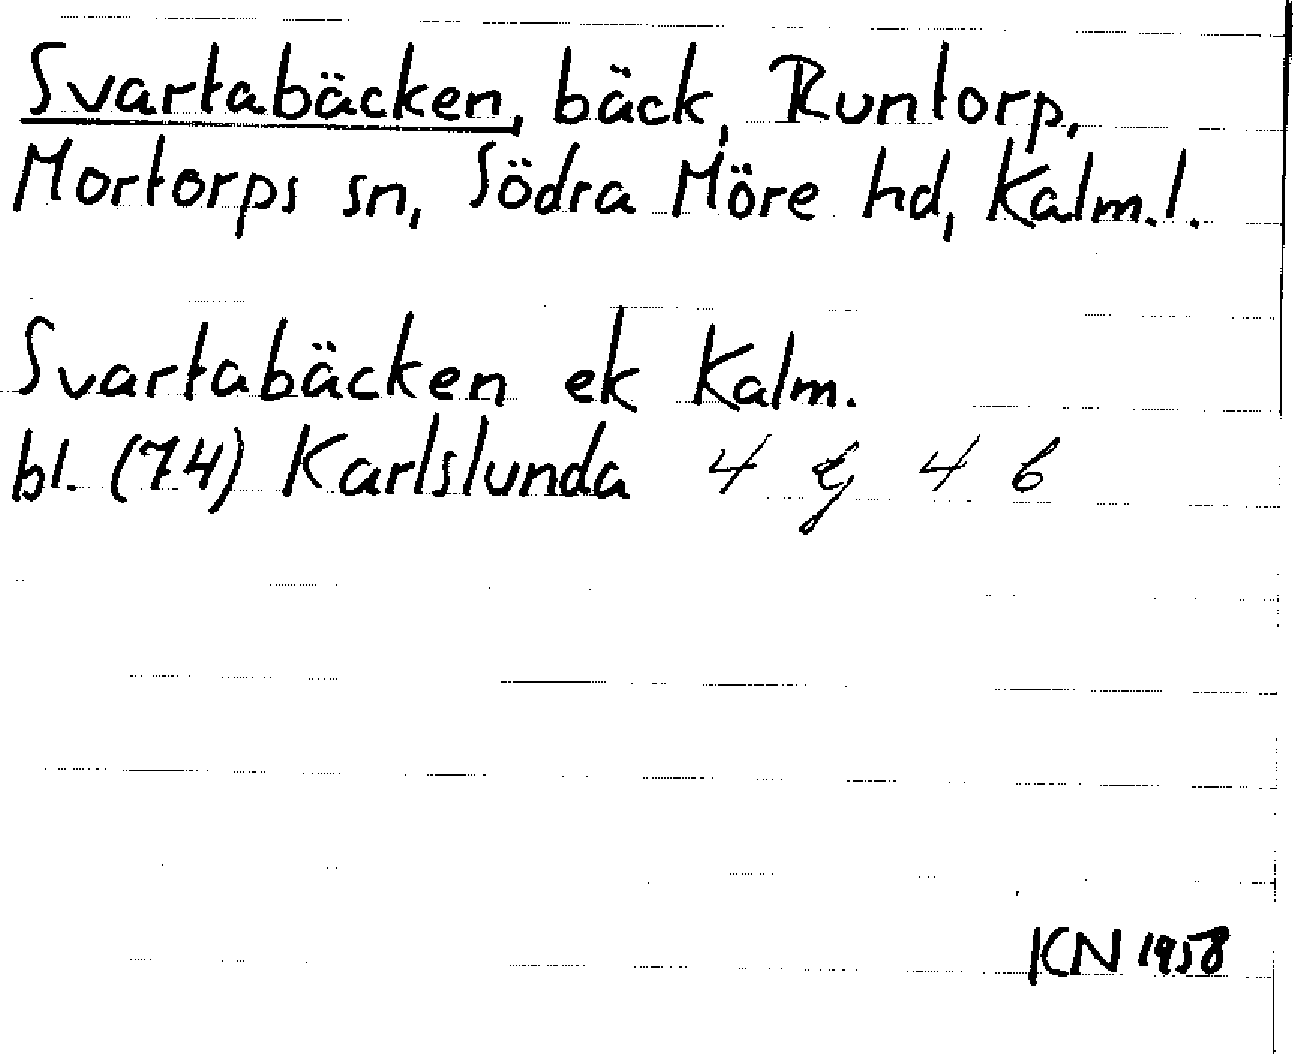 Svartabäcken, bäck, Runtorp,
Mortorps sn, Södra Möre hd, Kalm.l.
Svartabäcken ek Kalm.
bl. (74) Karlslunda 4 G 4 b
KN 1958